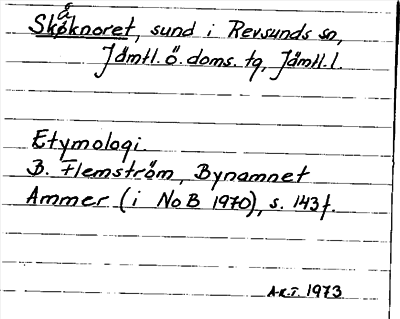 Skåknoret, sund i Revsunds sn,
Jämtl. ö. doms. tg, Jämtl. l.
Etymologi.
B. Flemström, Bynamnet
Ammer (i NoB 1970), s. 143f.
A.R.T. 1973